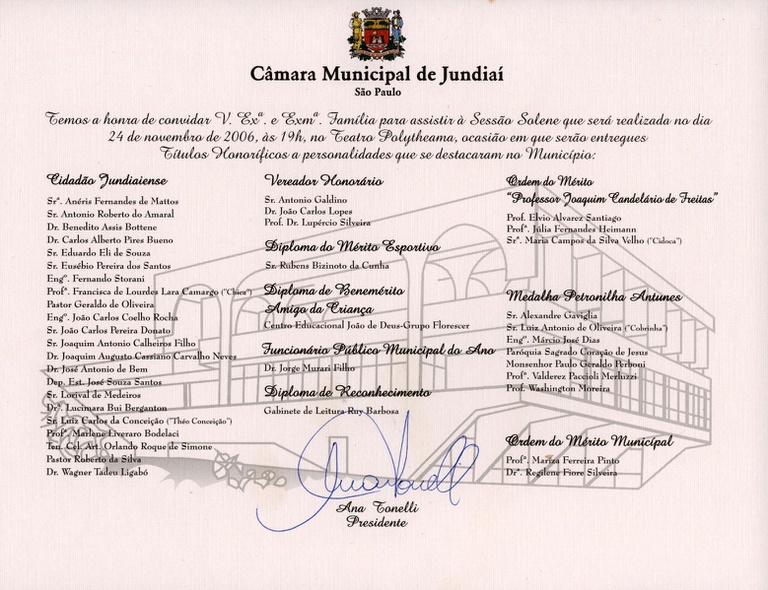 Câmara Municipal de Jundiaí
São Paulo
Temos a honra de convidar V. Exª. e Exmª. Família para assistir à Sessão Solene que será realizada no dia
24 de novembro de 2006, às 19h, no Teatro Polytheama, ocasião em que serão entregues
Títulos Honoríficos a personalidades que se destacaram no Município:
Cidadão Jundiaiense
Srª. Anéris Fernandes de Mattos
Sr. Antonio Roberto do Amaral
Dr. Benedito Assis Bottene
Dr. Carlos Alberto Pires Bueno
Sr. Eduardo Eli de Souza
Sr. Eusébio Pereira dos Santos
Engº. Fernando Storani
Profª. Francisca de Lourdes Lara Camargo ("Chica")
Pastor Geraldo de Oliveira
Engº. João Carlos Coelho Rocha
Sr. João Carlos Pereira Donato
Sr. Joaquim Antonio Calheiros Filho
Dr. Joaquim Augusto Cassiano Carvalho Neves
Dr. José Antonio de Bem
Dep. Est. José Souza Santos
Sr. Lorival de Medeiros
Drª. Lucimara Bui Berganton
Sr. Luiz Carlos da Conceição ("Théo Conceição")
Profª. Marlene Everaro Bodelaci
Ten. Cel. Art. Orlando Roque de Simone
Pastor Roberto da Silva
Dr. Wagner Tadeu Ligabó
Vereador Honorário
Sr. Antonio Galdino
Dr. João Carlos Lopes
Prof. Dr. Lupércio Silveira
Diploma do Mérito Esportivo
Sr. Rúbens Bizinoto da Cunha
Diploma de Benemérito
Amigo da Criança
Centro Educacional João de Deus-Grupo Florescer
Funcionário Público Municipal do Ano
Dr. Jorge Murari Filho
Diploma de Reconhecimento
Gabinete de Leitura Ruy Barbosa
Ordem do Mérito
"Professor Joaquim Candelário de Freitas"
Prof. Elvio Alvarez Santiago
Profª. Júlia Fernandes Heimann
Srª. Maria Campos da Silva Velho ("Cidoca")
Medalha Petronilha Antunes
Sr. Alexandre Gaviglia
Sr. Luiz Antonio de Oliveira ("Cobrinha")
Engº. Márcio José Dias
Paróquia Sagrado Coração de Jesus
Monsenhor Paulo Geraldo Perboni
Profª. Valderez Paccioli Merluzzi
Prof. Washington Moreira
Ordem do Mérito Municipal
Profª. Mariza Ferreira Pinto
Drª. Regilene Fiore Silveira
Ana Tonelli
Presidente